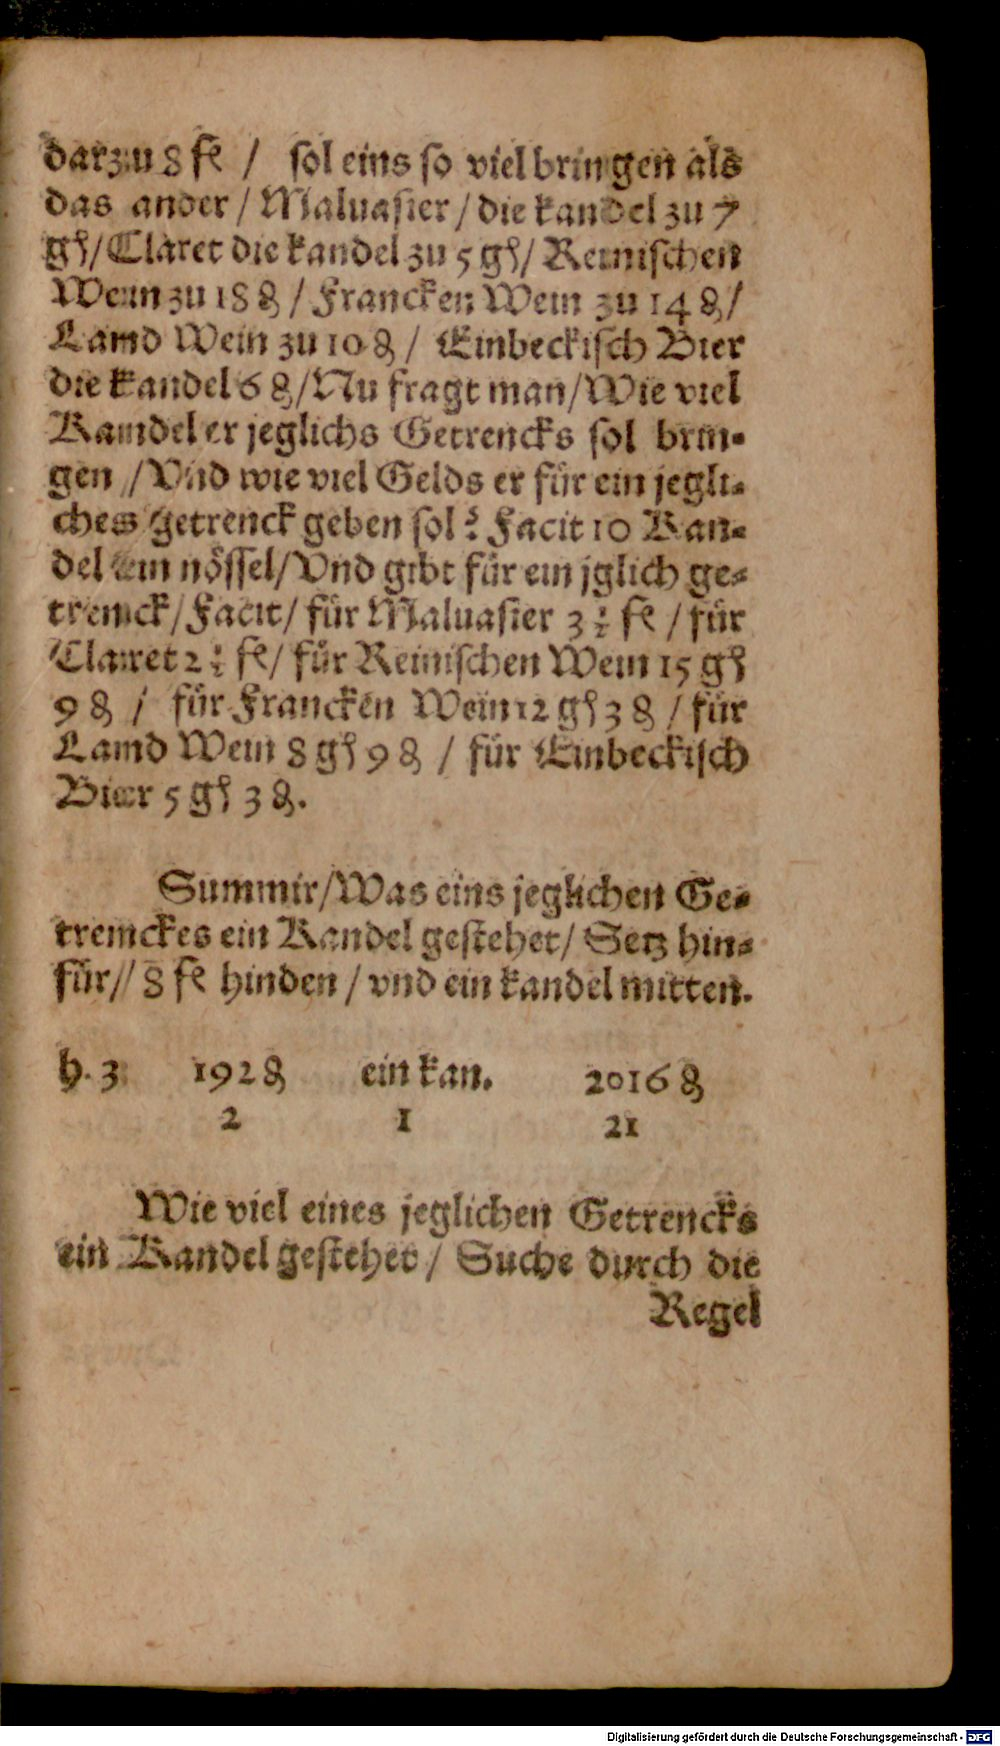 darzu 8 fl / sol eins so viel bringen als
das ander / Maluasier / die kandel zu 7
gſ / Claret die kandel zu 5 gſ / Reinischen
Wein zu 18 ₰ / Francken Wein zu 14 ₰ /
Land Wein zu 10 ₰ / Einbeckisch Bier
die kandel 6 ₰ / Nu fragt man / Wie viel
Kandel er jeglichs Getrencks sol brin-
gen / Vnd wie viel Gelds er für ein jegli-
ches getrenck geben sol? Facit 10 Kan-
del ein nössel / Vnd gibt für ein jglich ge-
trenck / Facit / für Maluasier 3 ½ fl / für
Claret 2 ½ fl / für Reinischen Wein 15 gſ
9 ₰ / für Francken Wein 12 gſ 3 ₰ / für
Land Wein 8 gſ 9 ₰ / für Einbeckisch
Bier 5 gſ 3 ₰.
Summir / Was eins jeglichen Ge-
trenckes ein Kandel gestehet / Setz hin-
für / 8 fl hinden / vnd ein kandel mitten.
h. 3 192 ₰ ein kan. 2016 ₰
2 1 21
Wie viel eines jeglichen Getrencks
ein Kandel gestehet / Suche durch die
Regel
Digitalisierung gefördert durch die Deutsche Forschungsgemeinschaft - DFG